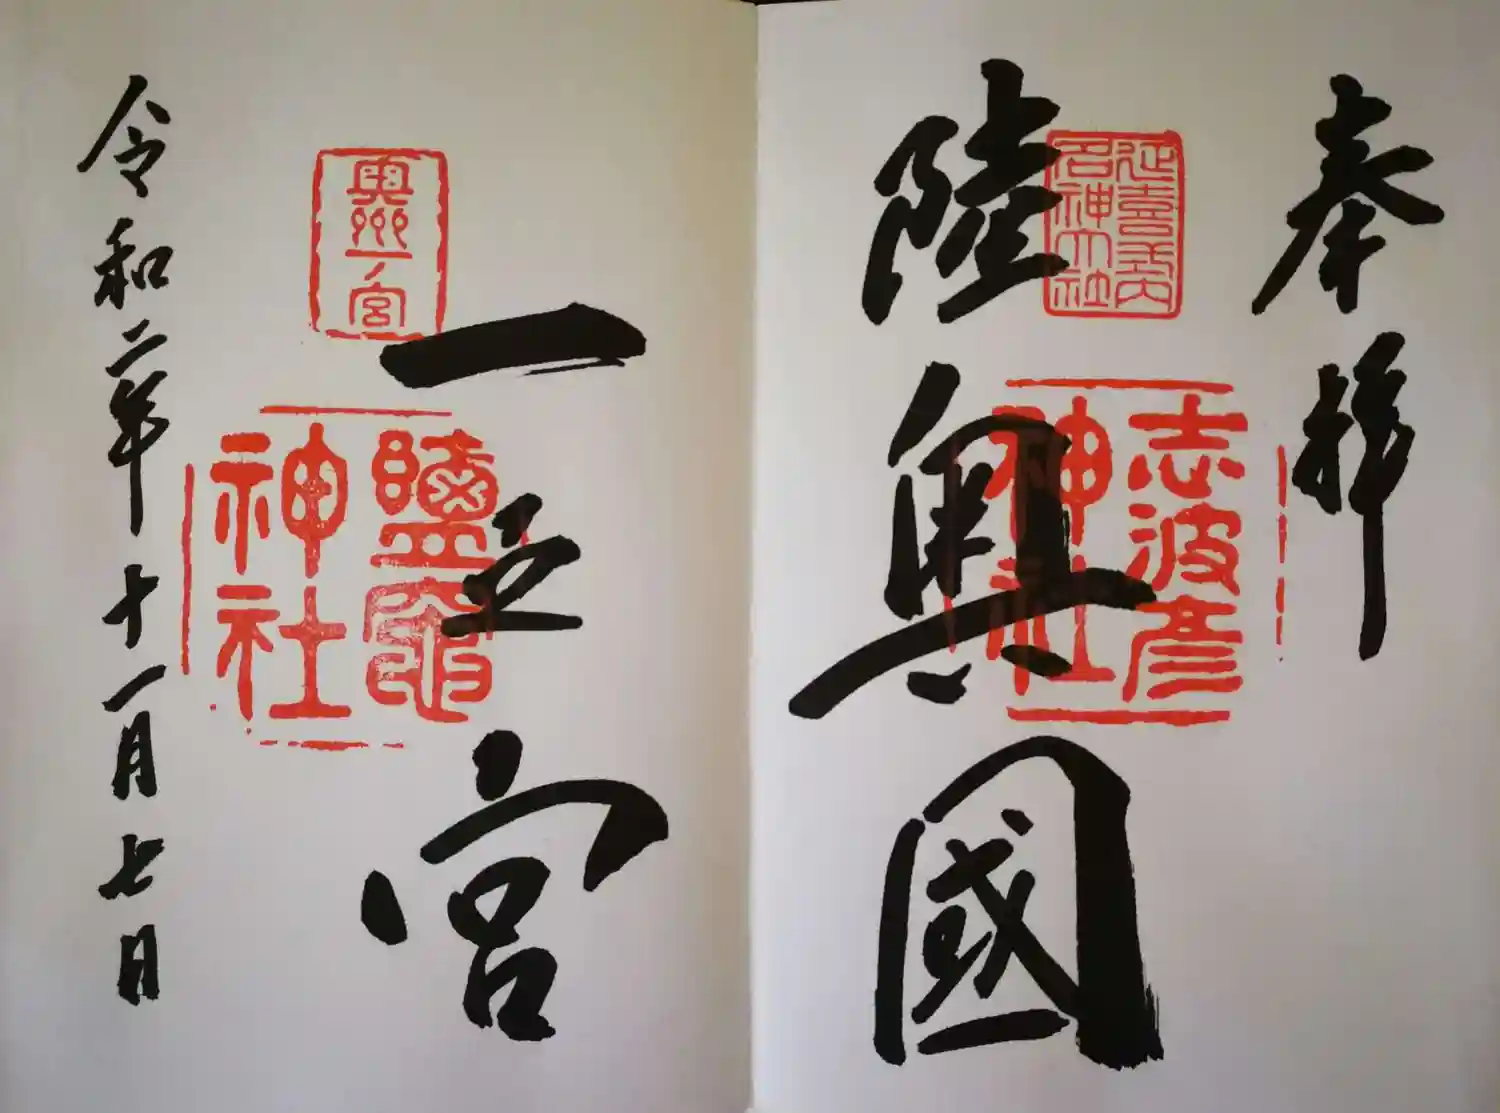 奉拝
延喜式内
名神大社
志波彦
神社
陸奥國
奥州一ノ宮
鹽竈
神社
一之宮
令和二年十一月七日